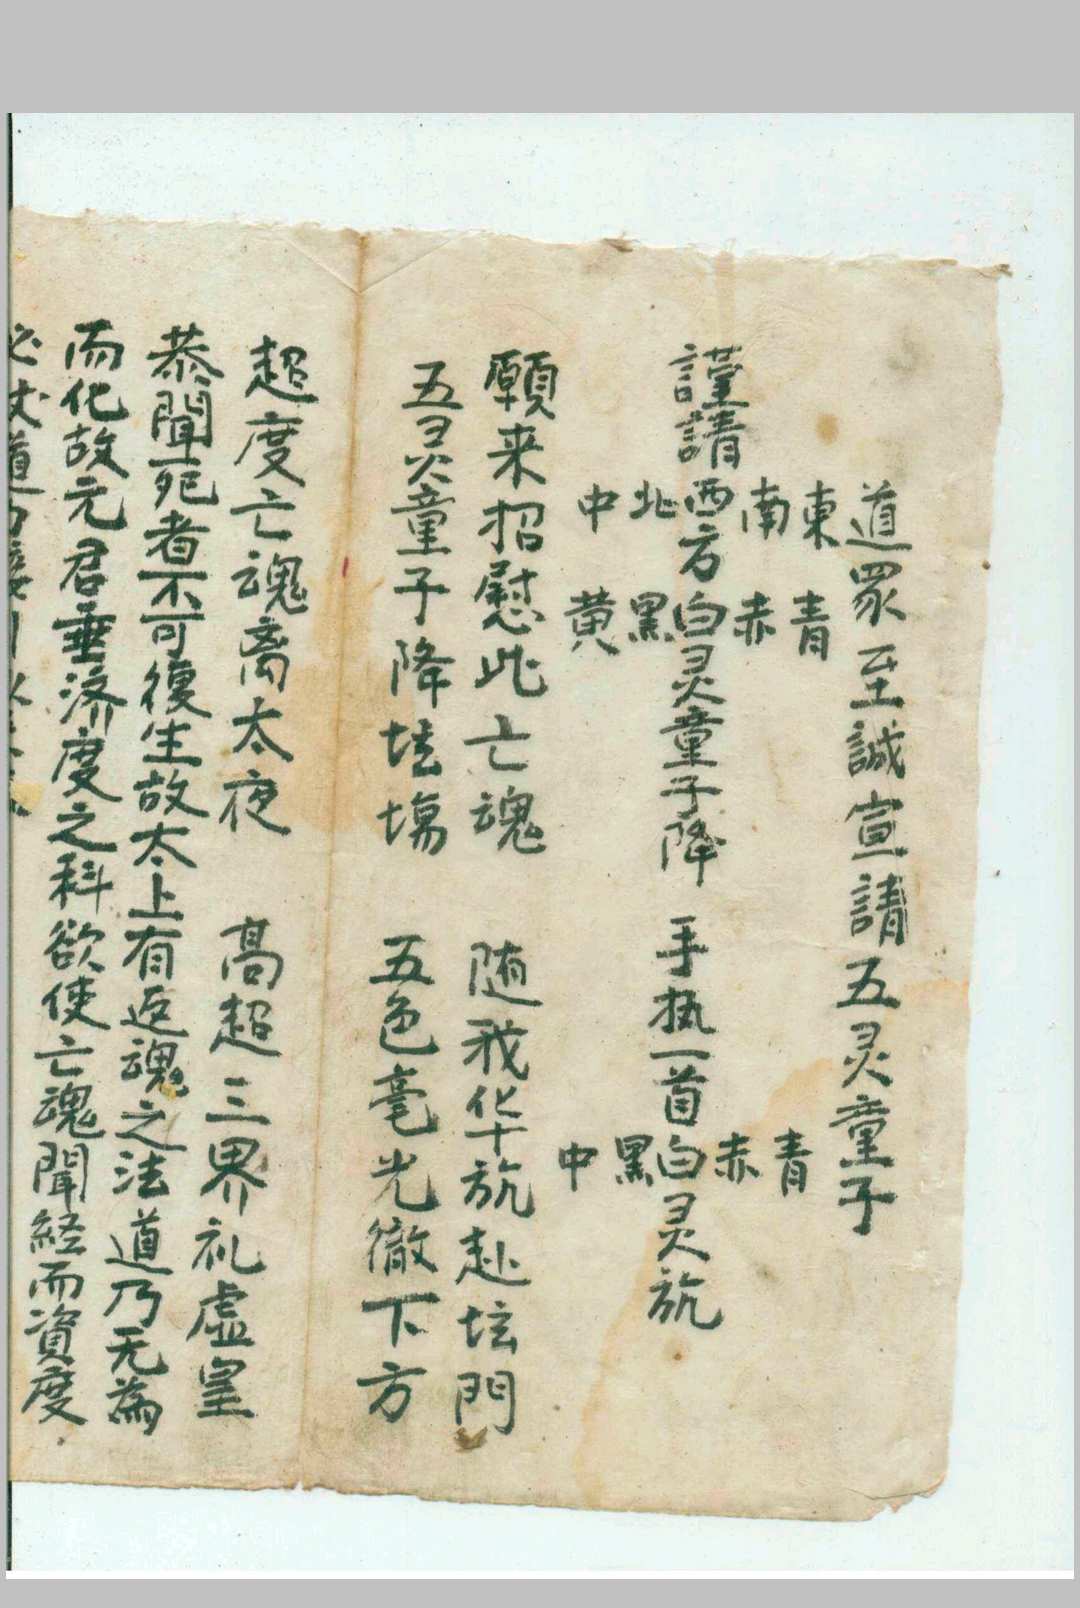 道眾至誠宣請五灵童子
東南西北中
謹請 方 灵童子降 手执一首 灵旂
青赤白黑黄
青赤白黑中
願来招慰此亡魂 随我华旂赴坛門
五灵童子降坛塲 五色毫光徹下方
超度亡魂离太夜 髙超三界礼虚皇
恭聞死者不可復生故太上有返魂之法道乃无為
而化故元君垂济度之科欲使亡魂聞経而資度
必仗道